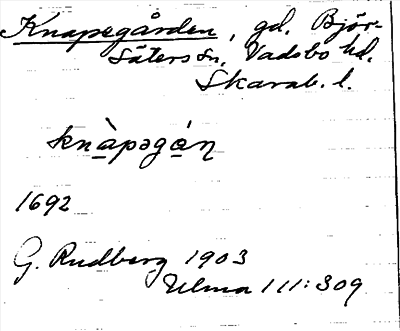 Knapegården, gd. Björ-
säters sn, Vadsbo hd.
Skarab. l.
knàpəgán
1692
G. Rudberg 1903
Ulma 111:309